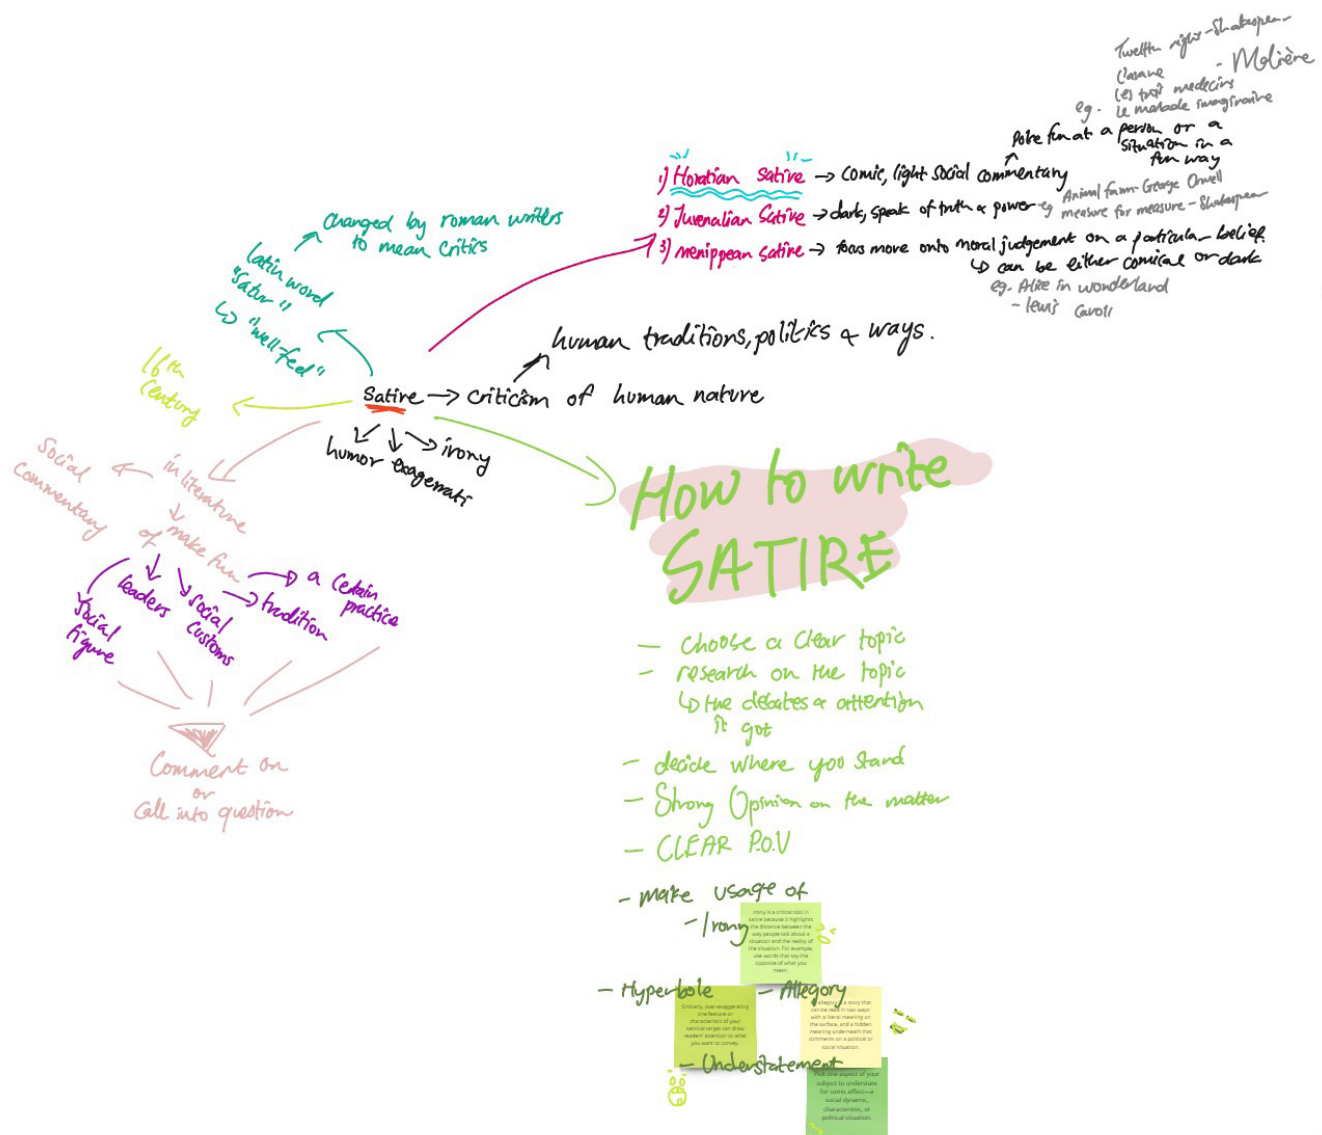 Twelfth night - Shakespear
L'avare
- Molière
Les trois medecins
eg. Le malade imaginaire
poke fun at a person or a
situation in a
fun way
1) Horatian Satire → Comic, light social commentary
2) Juvenalian Satire → dark, speak of truth & power eg Animal farm - George Orwell
measure for measure - Shakespear
3) menippean satire → focus move onto moral judgement on a particular belief.
↳ can be either comical or dark
eg. Alice in wonderland
- lewis Caroll
changed by roman writers
to mean critics
latin word
"Satur"
↳ "well-fed"
16th
Century
human traditions, politics & ways.
Satire → criticism of human nature
humor
exagerrati
irony
in literature
Social
Commentary
make fun
of
Social
figure
leaders
social
customs
tradition
a certain
practice
Comment on
or
Call into question
How to write
SATIRE
- choose a clear topic
- research on the topic
↳ the debates & attention
it got
- decide where you stand
- Strong Opinion on the matter
- CLEAR P.O.V
- Make usage of
- Irony
Irony is a critical tool in
satire because it highlights
the distance between the
way people talk about a
situation and the reality of
the situation. For example,
use words that say the
opposite of what you
mean.
- Hyperbole
Similarly, over-exaggerating
one feature or
characteristic of your
satirical target can draw
readers' attention to what
you want to convey.
- Allegory
allegory is a story that
can be read in two ways:
with a literal meaning on
the surface, and a hidden
meaning underneath that
comments on a political or
social situation.
- Understatement
Pick one aspect of your
subject to understate
for comic effect—a
social dynamic,
characteristic, or
political situation.